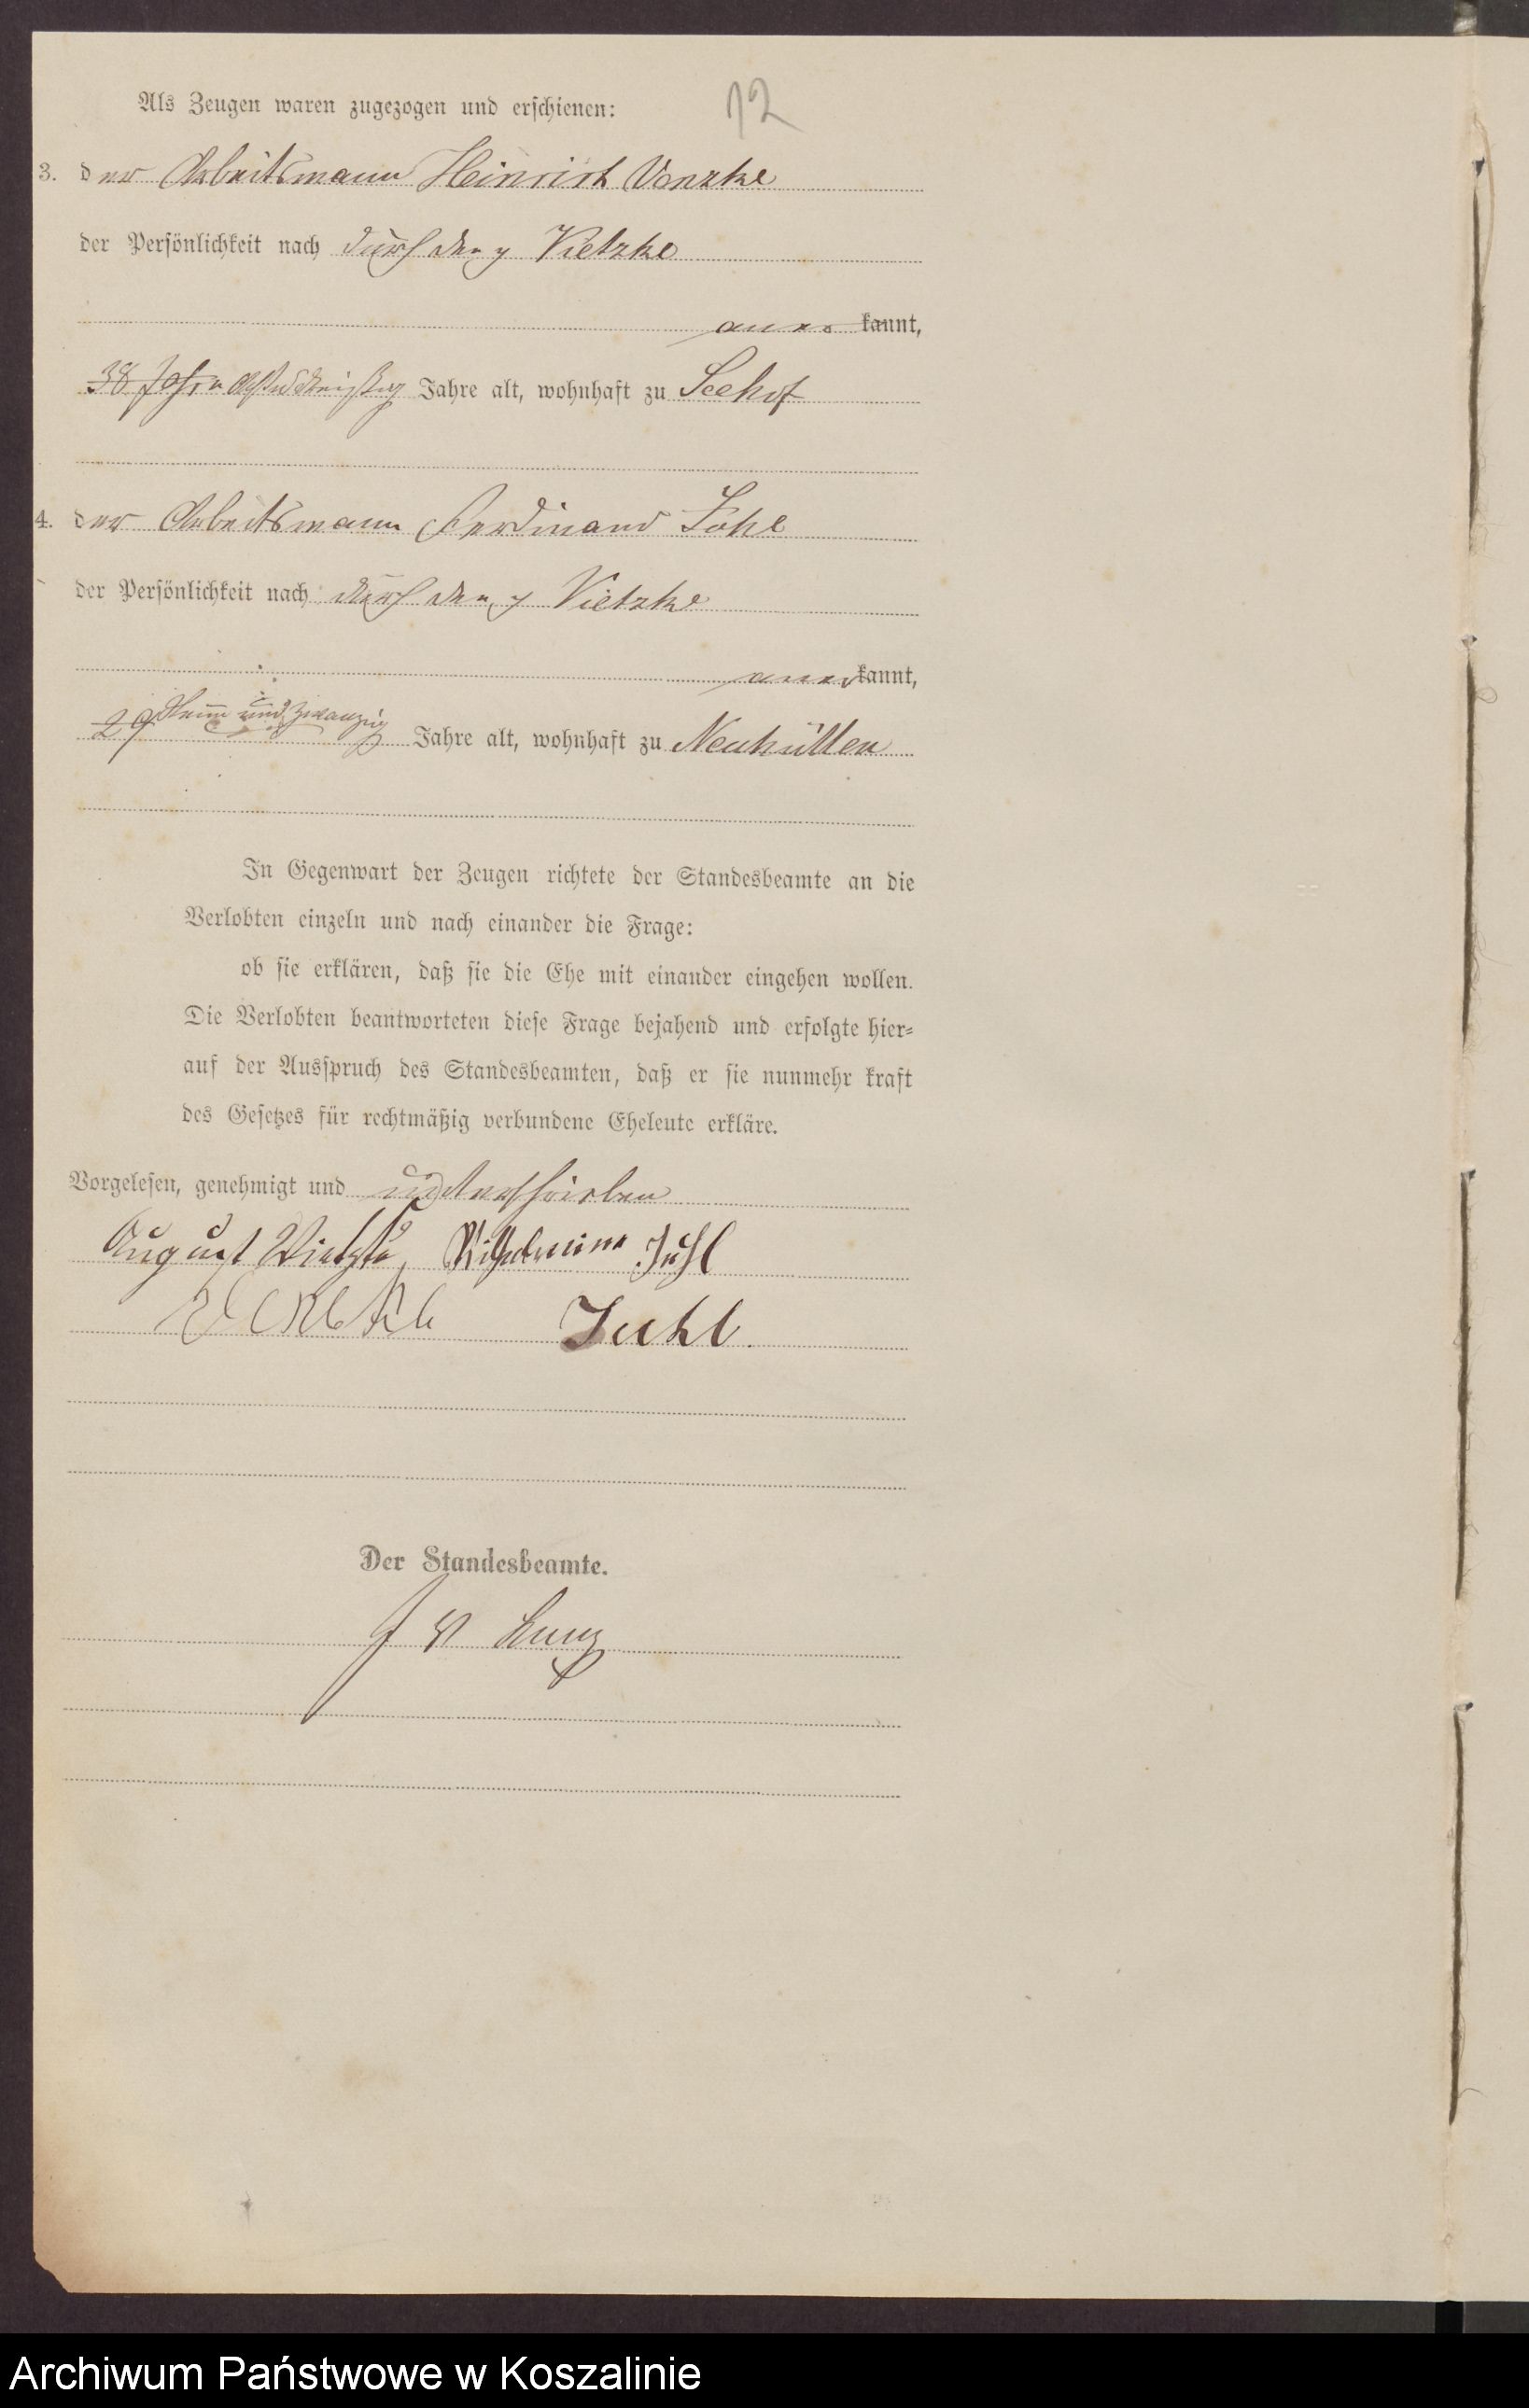 12
Als Zeugen waren zugezogen und erschienen:
3. der Arbeitsmann Heinrich Venzke
der Persönlichkeit nach durch den p Vietzke
anerkannt,
38 Jahre achtunddreißig Jahre alt, wohnhaft zu Seehof
4. der Arbeitsmann Ferdinand
der Persönlichkeit nach durch den p Vietzke
anerkannt,
29 Neun und zwanzig Jahre alt, wohnhaft zu Neuhütten
In Gegenwart der Zeugen richtete der Standesbeamte an die
Verlobten einzeln und nach einander die Frage:
ob sie erklären, daß sie die Ehe mit einander eingehen wollen.
Die Verlobten beantworteten diese Frage bejahend und erfolgte hier-
auf der Ausspruch des Standesbeamten, daß er sie nunmehr kraft
des Gesetzes für rechtmäßig verbundene Eheleute erkläre.
Vorgelesen, genehmigt und unterschrieben
August Vietzke, Wilhelmine Juhl
Juhl.
Der Standesbeamte.
Archiwum Państwowe w Koszalinie